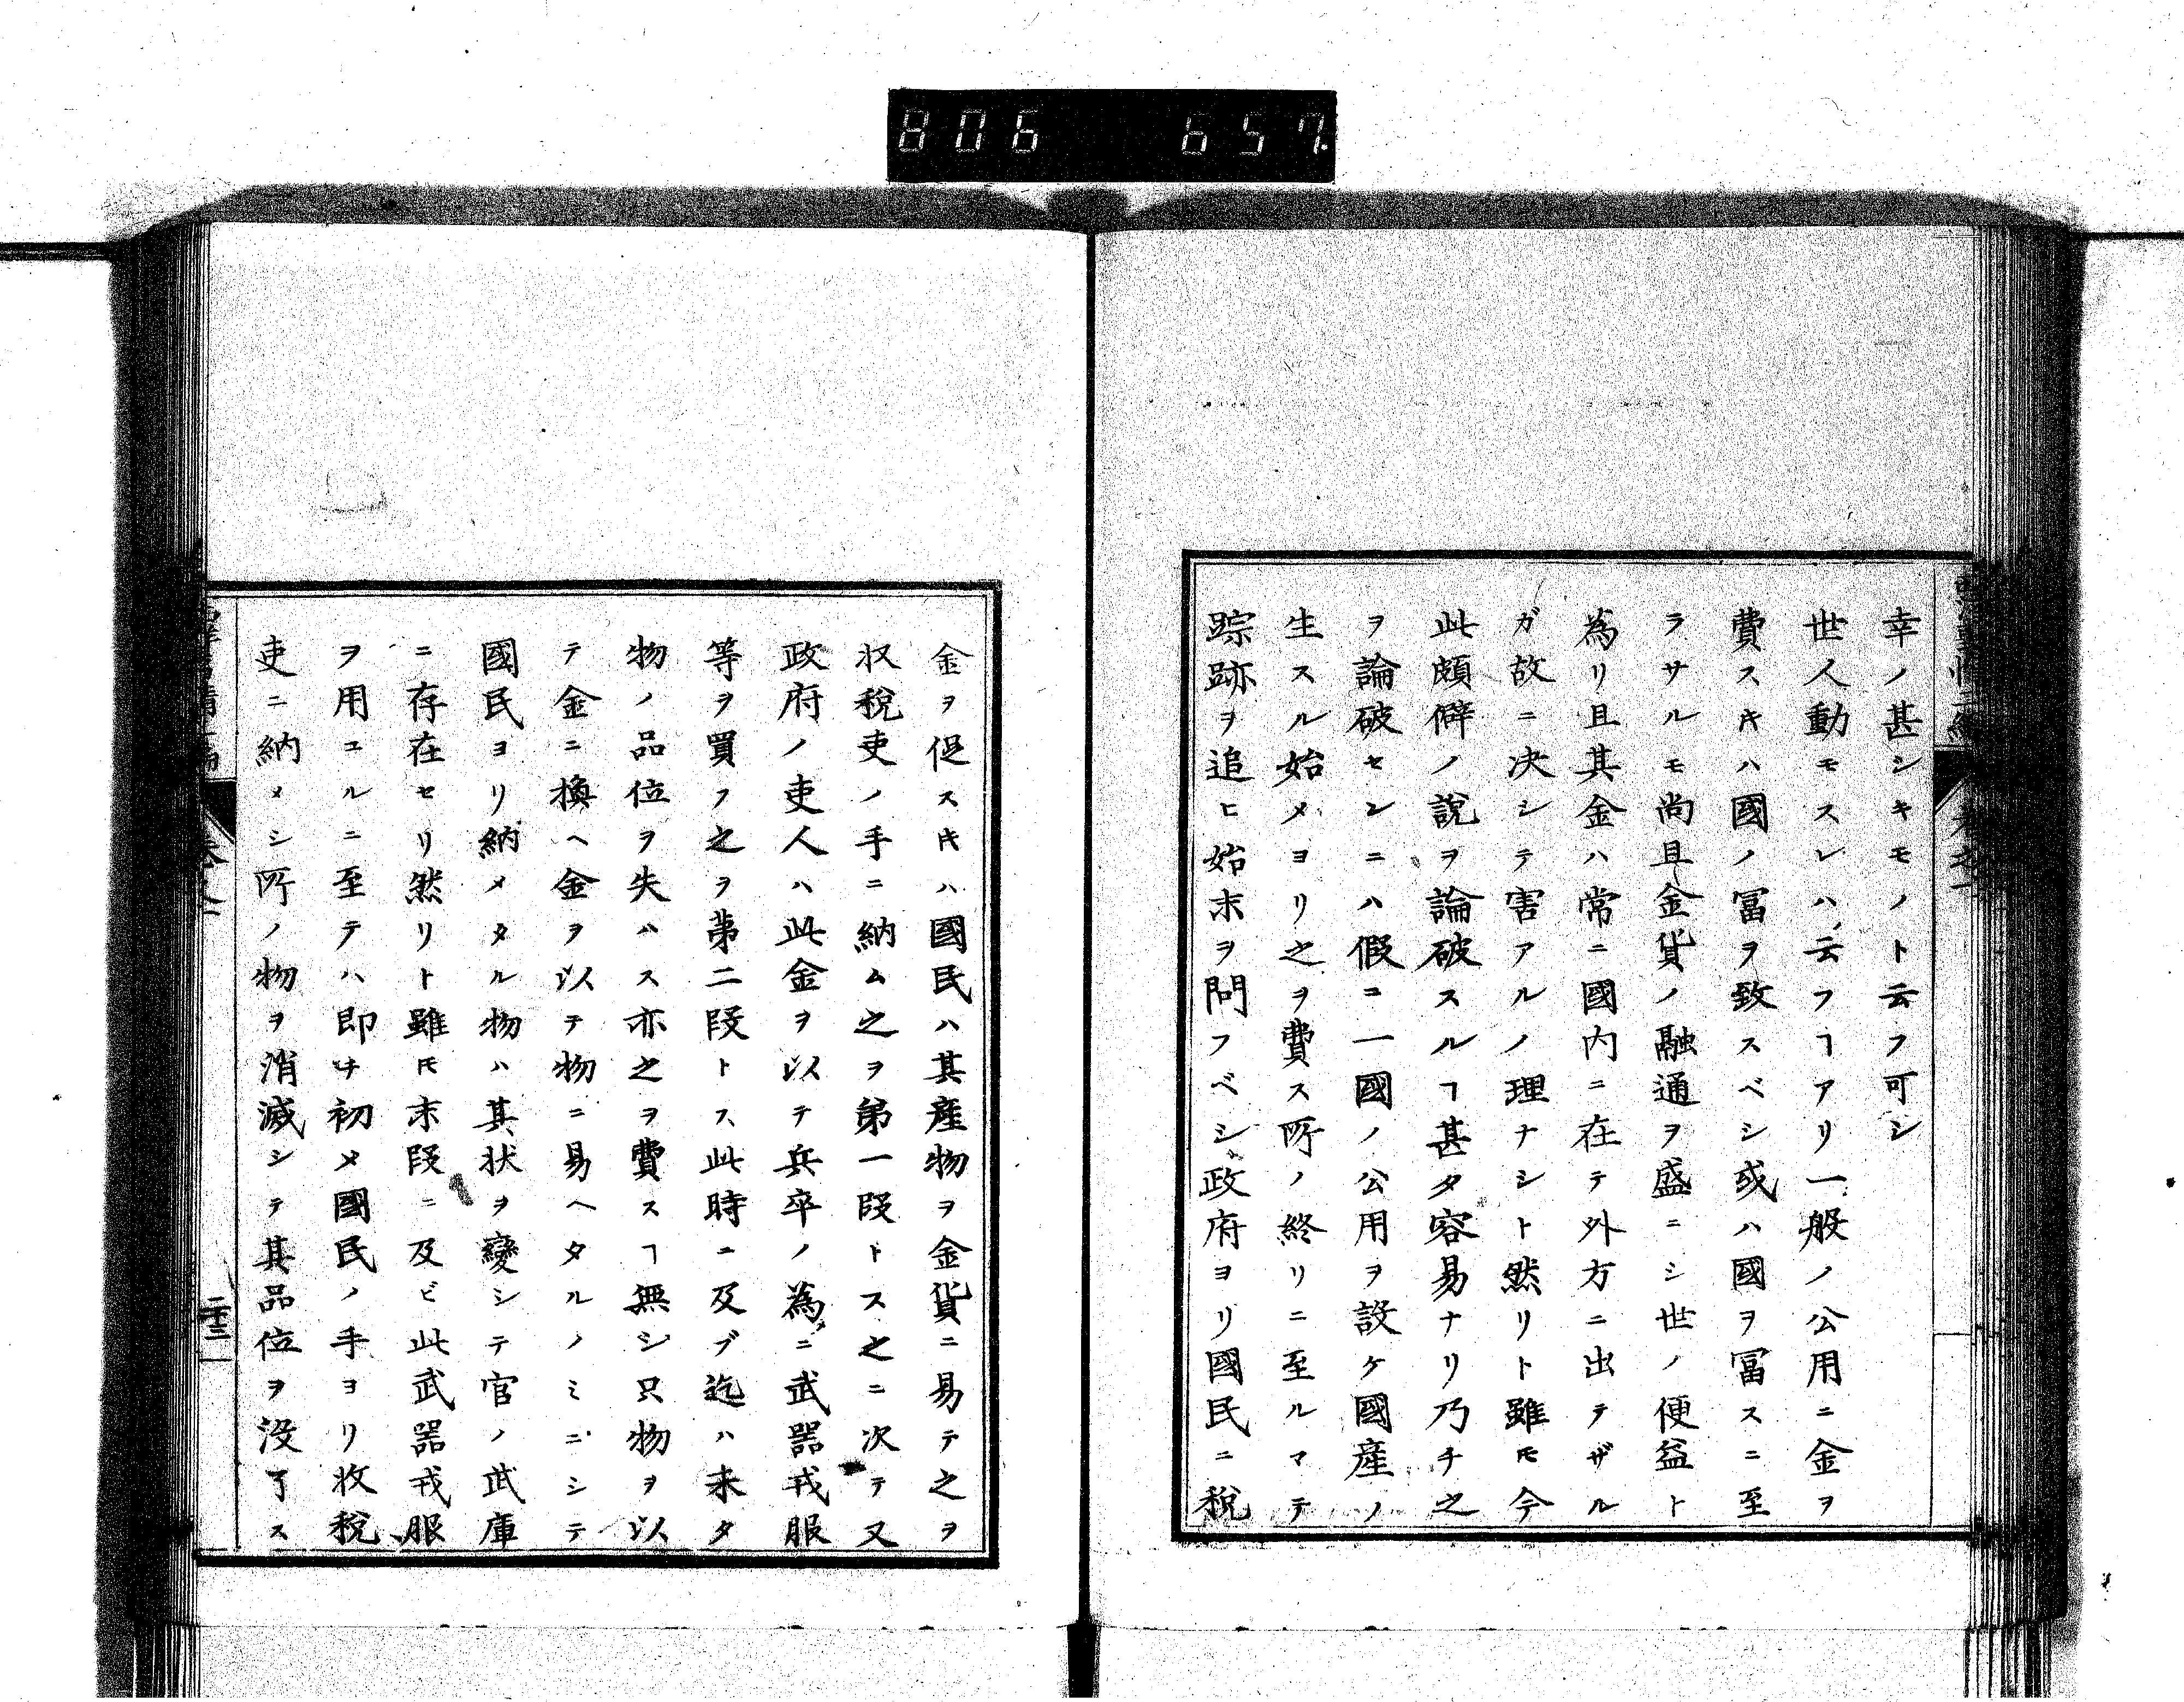 806 657
幸ノ甚シキモノト云フ可シ
世人動モスレハ云フヿアリ一般ノ公用ニ金ヲ
費スキハ國ノ冨ヲ致スベシ或ハ國ヲ冨スニ至
ラサルモ尚且金貨ノ融通ヲ盛ニシ世ノ便益ト
為リ且其金ハ常ニ國内ニ在テ外方ニ出テザル
ガ故ニ决シテ害アルノ理ナシト然リト雖𪜈今
此頗僻ノ說ヲ論破スルヿ甚タ容易ナリ乃チ之
ヲ論破センニハ假ニ一國ノ公用ヲ設ケ國産ノ
生スル始メヨリ之ヲ費ス所ノ終リニ至ルマテ
踪跡ヲ追ヒ始末ヲ問フベシ政府ヨリ國民ニ稅
金ヲ促スキハ國民ハ其産物ヲ金貨ニ易テ之ヲ
収稅吏ノ手ニ納ム之ヲ第一段トス之ニ次テ又
政府ノ吏人ハ此金ヲ以テ兵卒ノ為ニ武器戎服
等ヲ買フ之ヲ第二段トス此時ニ及ブ迄ハ未タ
物ノ品位ヲ失ハス亦之ヲ費スヿ無シ只物ヲ以
テ金ニ換ヘ金ヲ以テ物ニ易ヘタルノミニシテ
國民ヨリ納メタル物ハ其状ヲ變シテ官ノ武庫
ニ存在セリ然リト雖𪜈末段ニ及ビ此武器戎服
ヲ用ユルニ至テハ即チ初メ國民ノ手ヨリ收稅
吏ニ納メシ所ノ物ヲ消滅シテ其品位ヲ沒了ス
二十三